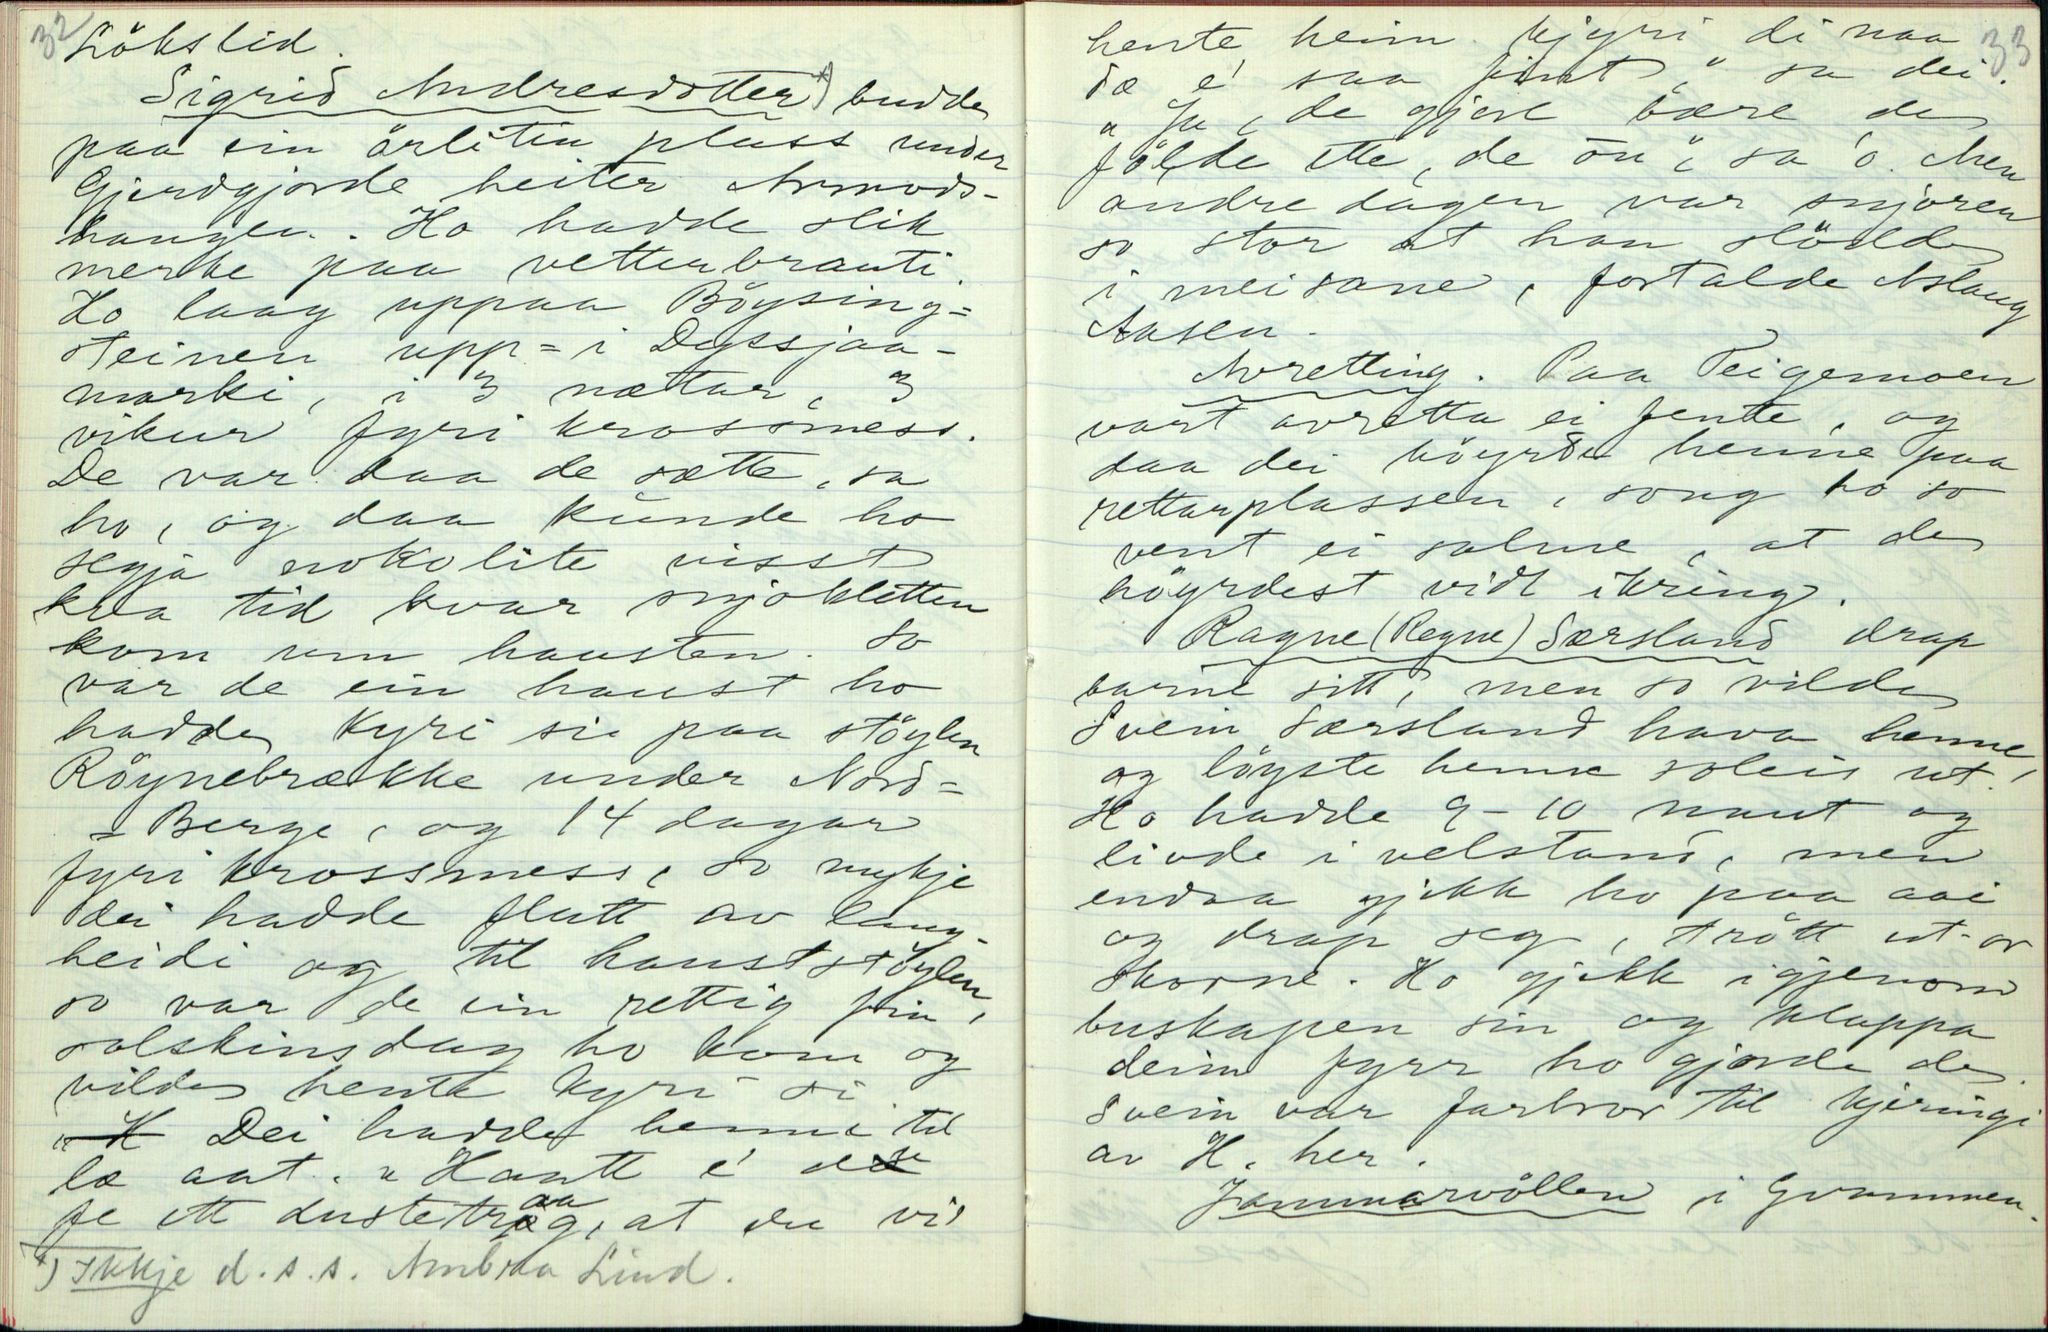 32
Lökslid.
Sigrid Andresdotter *) budde
paa ein örliten plass under
Gjerdgjorde heiter Armods-
haugen. Ho hadde slik
merke paa vetterbrauti.
Ho laag uppaa Böysing=
steinen upp=i Dyssjaa-
marki, i 3 nætar, 3
vikur fyri krossmess.
De var daa de sette, sa
ho, og daa kunde ho
segja nokolite visst
kva tid kvar snjokletten
kom um hausten. So
var de ein haust ho
hadde kyri si paa stöylen
Röynebrække under Nord=
= Berge, og 14 dagar
fyri krossmess, so mykje
dei hadde flutt av lang-
heidi og til hauststöylen,
so var de ein rettig fin,
solskinsdag ho kom og
vilde hente kyri si
Dei hadde henne til
læ aat. „Hautt e' de
fe itt dustetraag, at du vil
*) Ikkje d.s.s. Ambraa Lind.
33
hente heim kjyri di naa
dæ e' saa fint", sa dei.
„Ja, de gjere bære de
földe itte, de ön", sa 'o. Men
andre dagen var snjoren
so stor at han slödde
i meisane, fortalde Aslaug
Aasen.
Avretting. Paa Teigemoen
vart avretta ei jente, og
daa dei köyrde henne paa
rettarplassen, song ho so
vent ei salme, at de
höyrdest vidt ikring.
Ragne (Regne) Særsland drap
barne sitt, men so vilde
Svein Særsland hava henne,
og löyste henne soleis ut.
Ho hadde 9-10 naut og
livde i velstand, men
endaa gjekk ho paa aai
og drap seg, trött ut-av
skorne. Ho gjekk igjenom
buskapen sin og klappa
deim fyrr ho gjorde de.
Svein var farbror til kjeringi
av H. her.
Jammarvöllen i Gvammen.